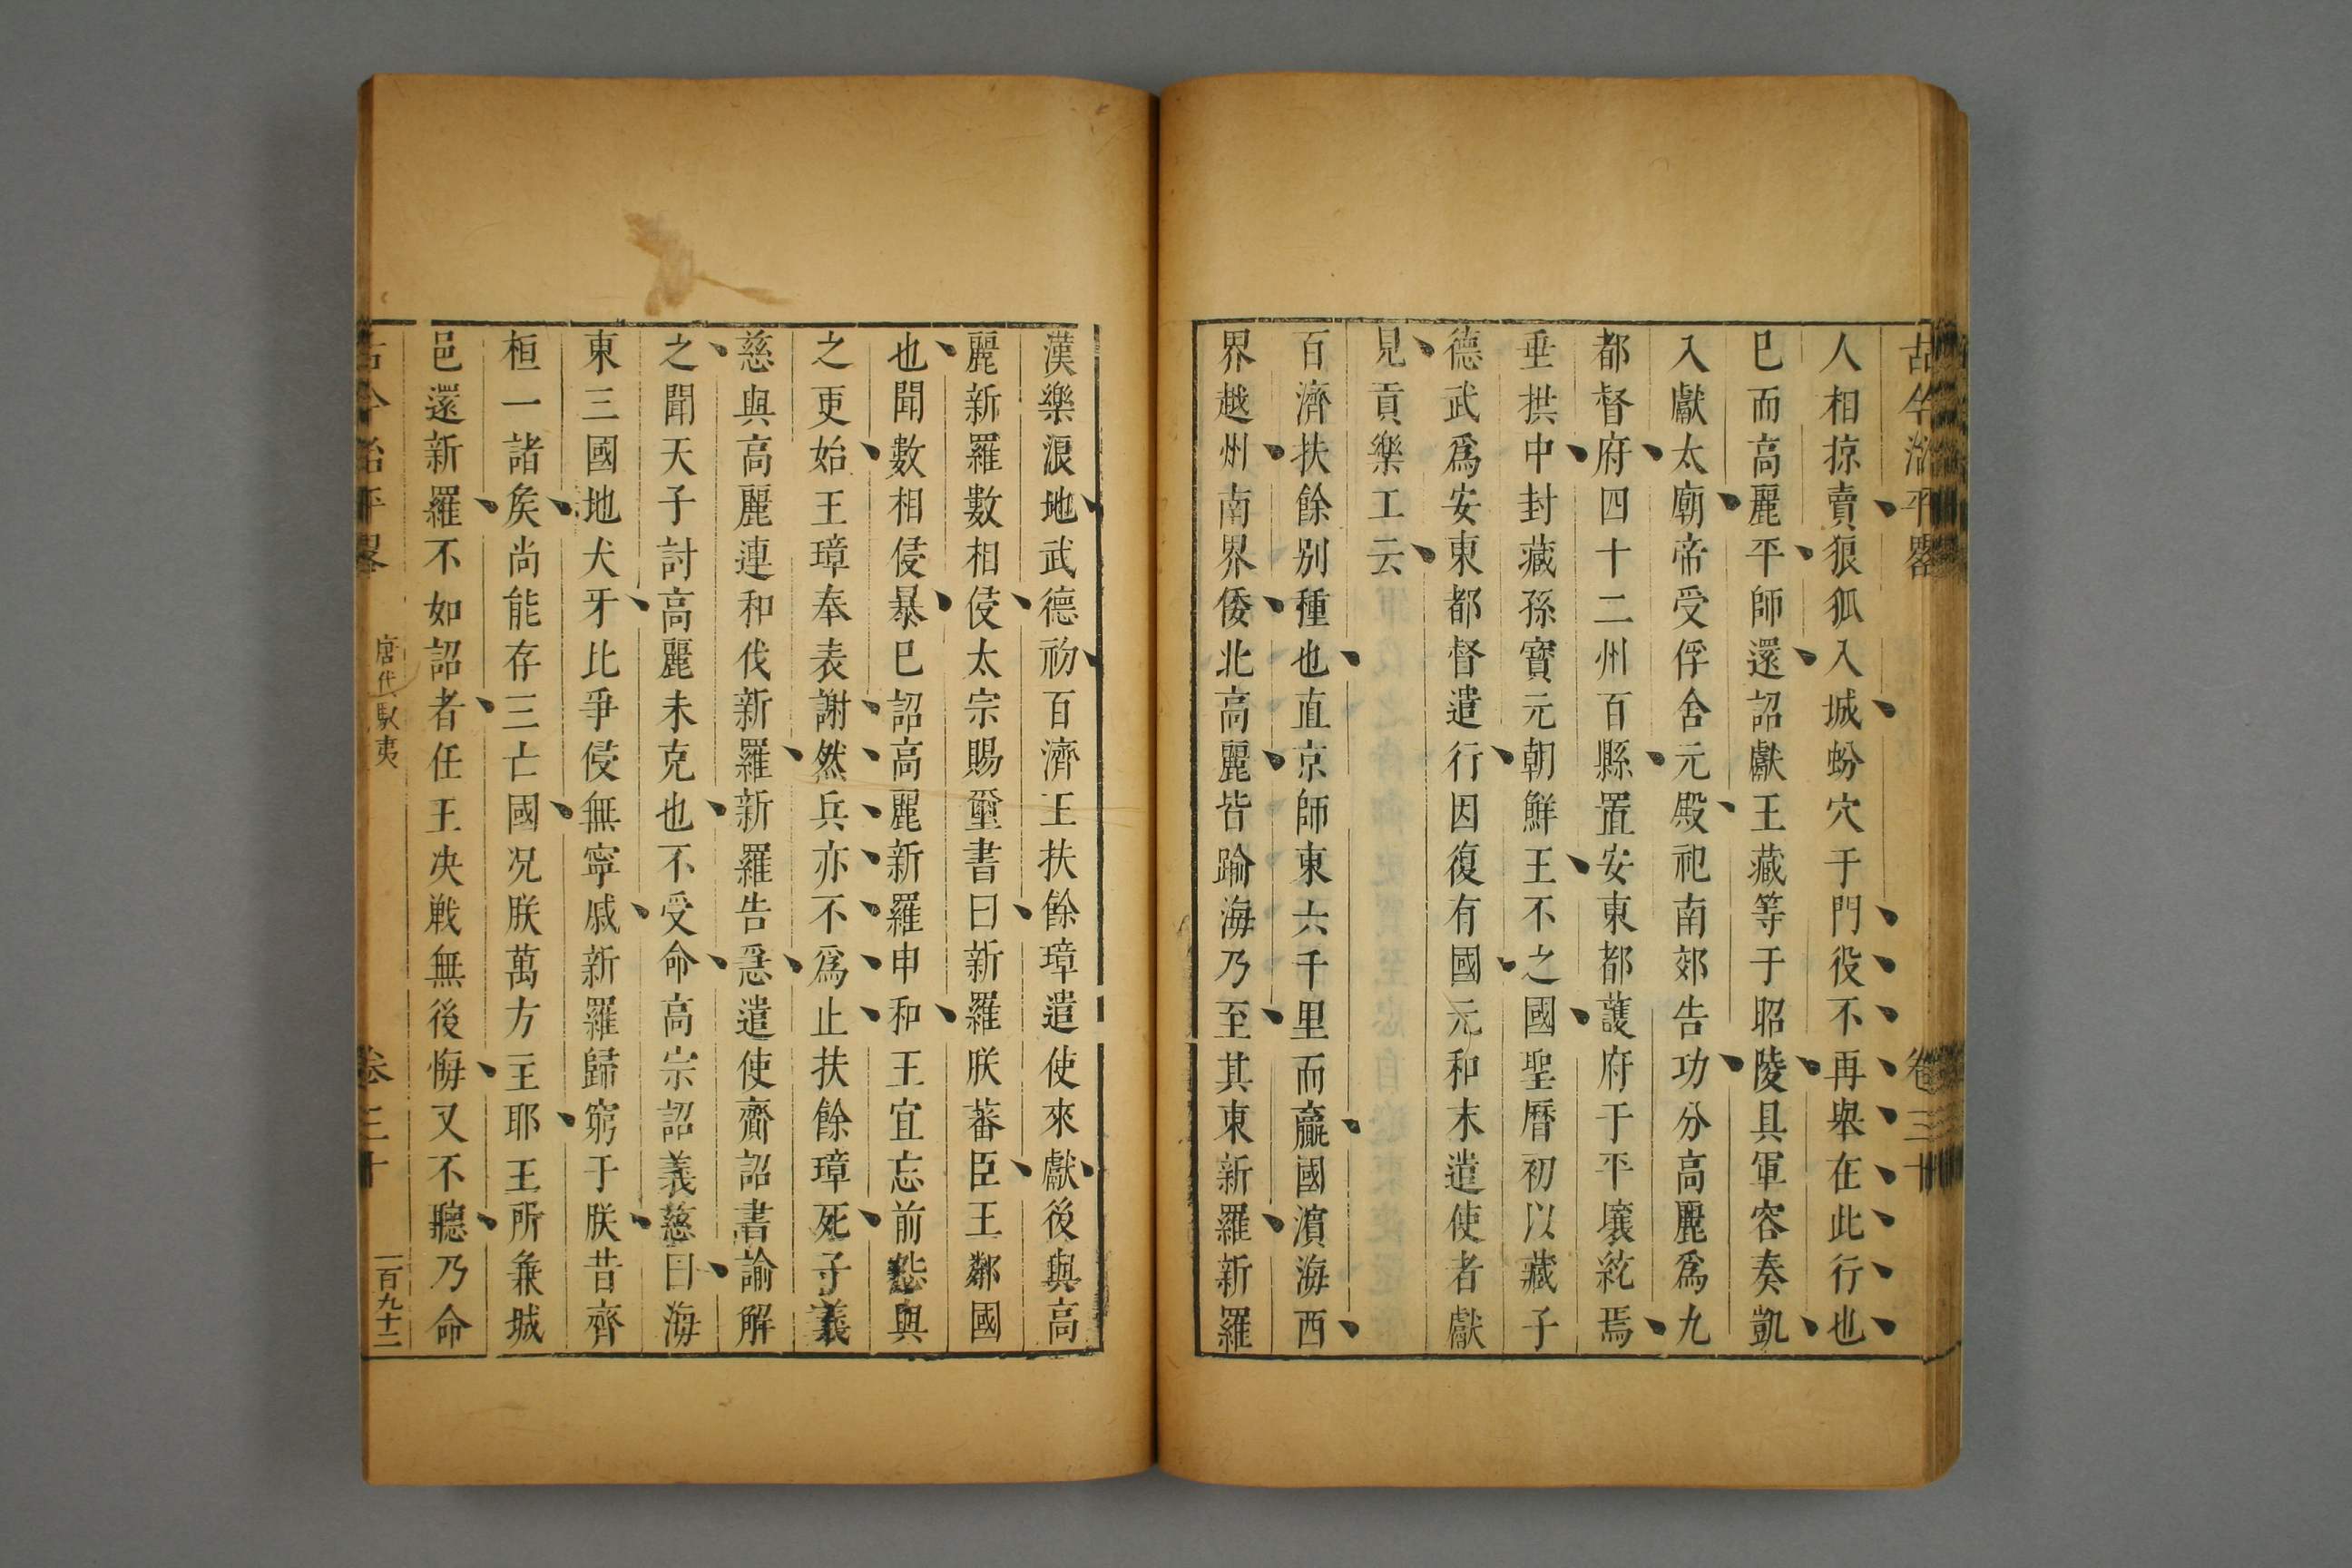 古今治平畧 卷三十
人相掠賣狼狐入城蚡穴于門役不再舉在此行也
巳而高麗平師還詔獻王藏等于昭陵具軍容奏凱
入獻太廟帝受俘含元殿祀南郊告功分高麗爲九
都督府四十二州百縣置安東都護府于平壤統焉
垂拱中封藏孫寶元朝鮮王不之國聖曆初以藏子
德武爲安東都督遣行因復有國元和末遣使者獻
見貢樂工云
百濟扶餘別種也直京師東六千里而贏國濵海西
界越州南界倭北高麗皆踰海乃至其東新羅新羅
漢樂浪地武德初百濟王扶餘璋遣使來獻後與高
麗新羅數相侵太宗賜璽書曰新羅朕蕃臣王鄰國
也聞數相侵暴巳詔高麗新羅申和王宜忘前怨與
之更始王璋奉表謝然兵亦不爲止扶餘璋死子義
慈與高麗連和伐新羅新羅告急遣使齎詔書諭解
之聞天子討高麗未克也不受命高宗詔義慈曰海
東三國地犬牙比爭侵無寧戚新羅歸窮于朕昔齊
桓一諸矦尚能存三亡國况朕萬方主耶王所兼城
邑還新羅不如詔者任王决戰無後悔又不聽乃命
古今治平畧 唐代馭夷 卷三十 一百九十二